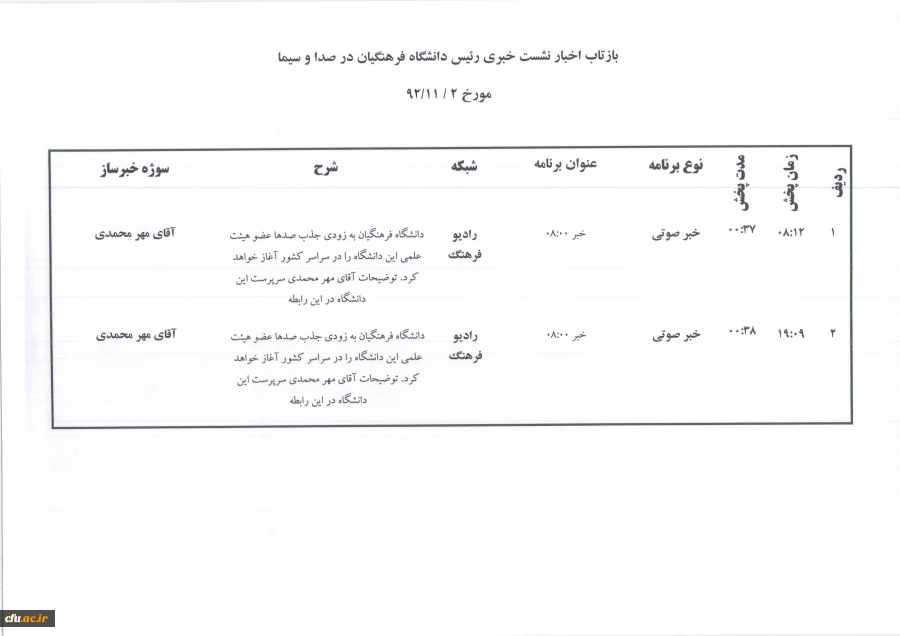 بازتاب اخبار نشست خبری رئیس دانشگاه فرهنگیان در صدا و سیما
مورخ ۲ / ۹۲/۱۱
ردیف زمان پخش مدت پخش نوع برنامه عنوان برنامه شبکه شرح سوژه خبرساز
۱ ۰۸:۱۲ ۰۰:۳۷ خبر صوتی خبر ۰۸:۰۰ رادیو دانشگاه فرهنگیان به زودی جذب صدها عضو هیئت آقای مهر محمدی
فرهنگ علمی این دانشگاه را در سراسر کشور آغاز خواهد
کرد. توضیحات آقای مهر محمدی سرپرست این
دانشگاه در این رابطه
۲ ۱۹:۰۹ ۰۰:۳۸ خبر صوتی خبر ۰۸:۰۰ رادیو دانشگاه فرهنگیان به زودی جذب صدها عضو هیئت آقای مهر محمدی
فرهنگ علمی این دانشگاه را در سراسر کشور آغاز خواهد
کرد. توضیحات آقای مهر محمدی سرپرست این
دانشگاه در این رابطه
cfu.ac.ir